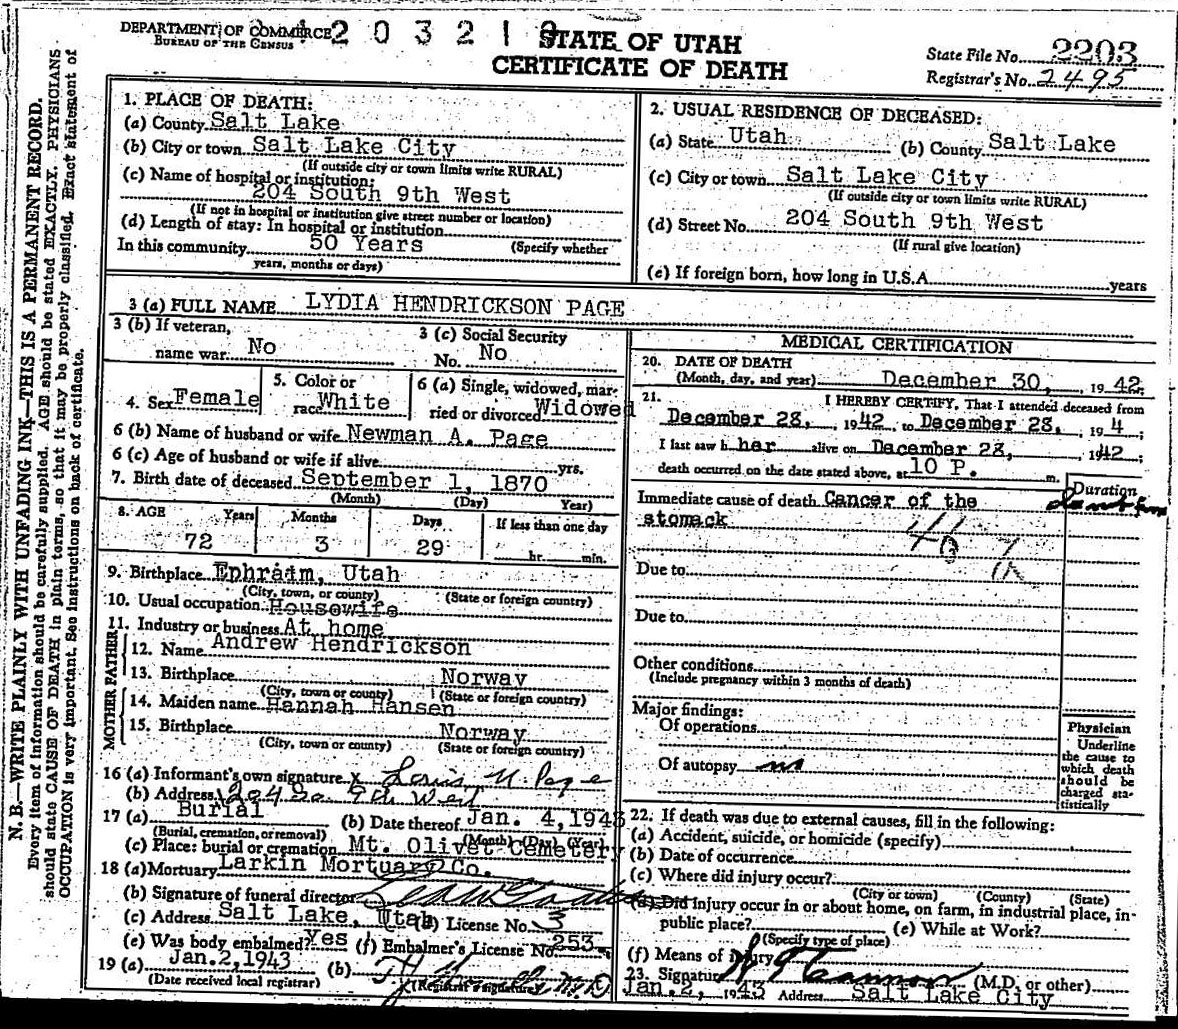 DEPARTMENT OF COMMERCE
BUREAU OF THE CENSUS
2 0 3 2 1
STATE OF UTAH
CERTIFICATE OF DEATH
State File No. 2203
Registrar's No. 2495
N. B.—WRITE PLAINLY WITH UNFADING INK—THIS IS A PERMANENT RECORD.
Every item of information should be carefully supplied. AGE should be stated EXACTLY. PHYSICIANS
should state CAUSE OF DEATH in plain terms, so that it may be properly classified. Exact statement of
OCCUPATION is very important. See instructions on back of certificate.
1. PLACE OF DEATH:
(a) County Salt Lake
(b) City or town Salt Lake City
(If outside city or town limits write RURAL)
(c) Name of hospital or institution:
204 South 9th West
(If not in hospital or institution give street number or location)
(d) Length of stay: In hospital or institution
In this community 50 Years (Specify whether
years, months or days)
2. USUAL RESIDENCE OF DECEASED:
(a) State Utah (b) County Salt Lake
(c) City or town Salt Lake City
(If outside city or town limits write RURAL)
(d) Street No. 204 South 9th West
(If rural give location)
(e) If foreign born, how long in U.S.A. years
3 (a) FULL NAME LYDIA HENDRICKSON PAGE
3 (b) If veteran,
name war No
3 (c) Social Security
No. No
4. Sex Female
5. Color or
race White
6 (a) Single, widowed, mar-
ried or divorced Widowed
6 (b) Name of husband or wife Newman A. Page
6 (c) Age of husband or wife if alive yrs.
7. Birth date of deceased September 1, 1870
(Month) (Day) Year)
8. AGE Years Months Days If less than one day
72 3 29 hr. min.
9. Birthplace Ephraim, Utah
(City, town, or county) (State or foreign country)
10. Usual occupation Housewife
11. Industry or business At home
FATHER
12. Name Andrew Hendrickson
13. Birthplace Norway
(City, town or county) (State or foreign country)
MOTHER
14. Maiden name Hannah Hansen
15. Birthplace Norway
(City, town or county) (State or foreign country)
16 (a) Informant's own signature x Page
(b) Address 204 So. 9th West
17 (a) Burial (b) Date thereof Jan. 4, 1943
(Burial, cremation, or removal) (Month) (Day) (Year)
(c) Place: burial or cremation Mt. Olivet Cemetery
18 (a) Mortuary Larkin Mortuary Co.
(b) Signature of funeral director
(c) Address Salt Lake, Utah (d) License No. 3
(e) Was body embalmed? Yes (f) Embalmer's License No. 253
19 (a) Jan. 2, 1943 (b)
(Date received local registrar) (Registrar's signature)
MEDICAL CERTIFICATION
20. DATE OF DEATH
(Month, day, and year) December 30, 1942;
21. I HEREBY CERTIFY, That I attended deceased from
December 28, 1942 to December 28, 194 ;
I last saw h her alive on December 28, 1942;
death occurred on the date stated above, at 10 P. m.
Duration
Immediate cause of death Cancer of the
stomack
46
Due to
Due to
Other conditions
(Include pregnancy within 3 months of death)
Major findings:
Of operations
Of autopsy no
Physician
Underline
the cause to
which death
should be
charged sta-
tistically
22. If death was due to external causes, fill in the following:
(a) Accident, suicide, or homicide (specify)
(b) Date of occurrence
(c) Where did injury occur?
(City or town) (County) (State)
(d) Did injury occur in or about home, on farm, in industrial place, in-
public place? (e) While at Work?
(Specify type of place)
(f) Means of injury
23. Signature Cannon (M.D. or other)
Jan. 2, 1943 Address Salt Lake City